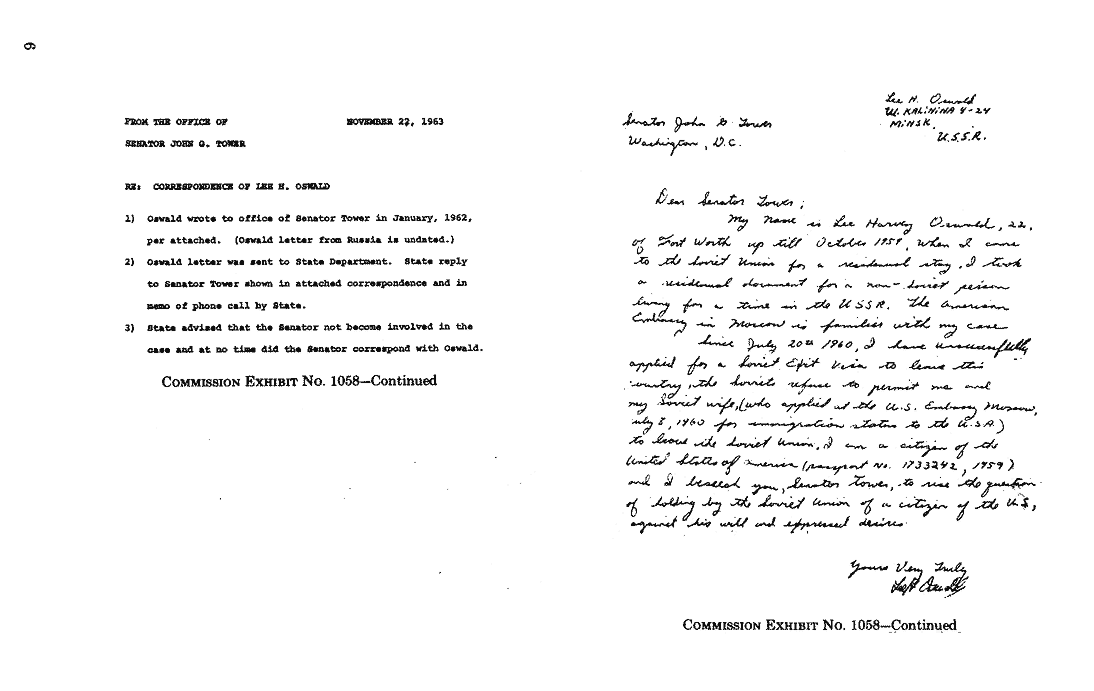 6
FROM THE OFFICE OF NOVEMBER 22, 1963
SENATOR JOHN G. TOWER
RE: CORRESPONDENCE OF LEE H. OSWALD
1) Oswald wrote to office of Senator Tower in January, 1962,
per attached. (Oswald letter from Russia is undated.)
2) Oswald letter was sent to State Department. State reply
to Senator Tower shown in attached correspondence and in
memo of phone call by State.
3) State advised that the Senator not become involved in the
case and at no time did the Senator correspond with Oswald.
COMMISSION EXHIBIT NO. 1058—Continued
Lee H. Oswald
U. KALININA 4-24
MINSK,
U.S.S.R.
Senator John G Tower
Washington, D.C.
Dear Senator Tower;
My name is Lee Harvey Oswald, 22,
of Fort Worth up till October 1959, when I came
to the Soviet Union for a residenual stay. I took
a residenual document for a non-Soviet person
living for a time in the USSR. The American
Embassy in Moscow is familier with my case
Since July 20th 1960, I have unsucessfully
applied for a Soviet Exit Visa to leave this
country, the Soviets refuse to permit me and
my Soviet wife, (who applied at the U.S. Embassy Moscow,
July 8, 1960 for immigration status to the U.S.A.)
to leave the Soviet Union. I am a citizen of the
United States of America (passport No. 1733242, 1959)
and I beseech you, Senator Tower, to rise the question
of holding by the Soviet Union of a citizen of the U.S.,
against his will and expressed desires.
Yours Very Truly
Lee H. Oswald
COMMISSION EXHIBIT NO. 1058—Continued